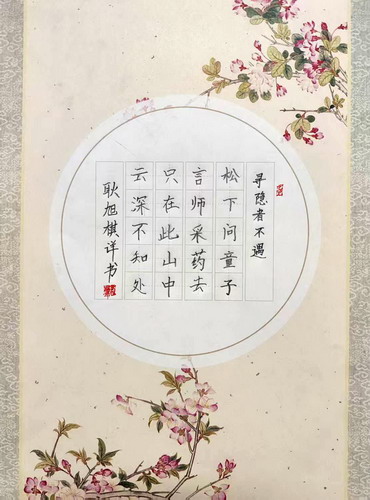 寻隐者不遇
松下问童子
言师采药去
只在此山中
云深不知处
耿旭棋详书